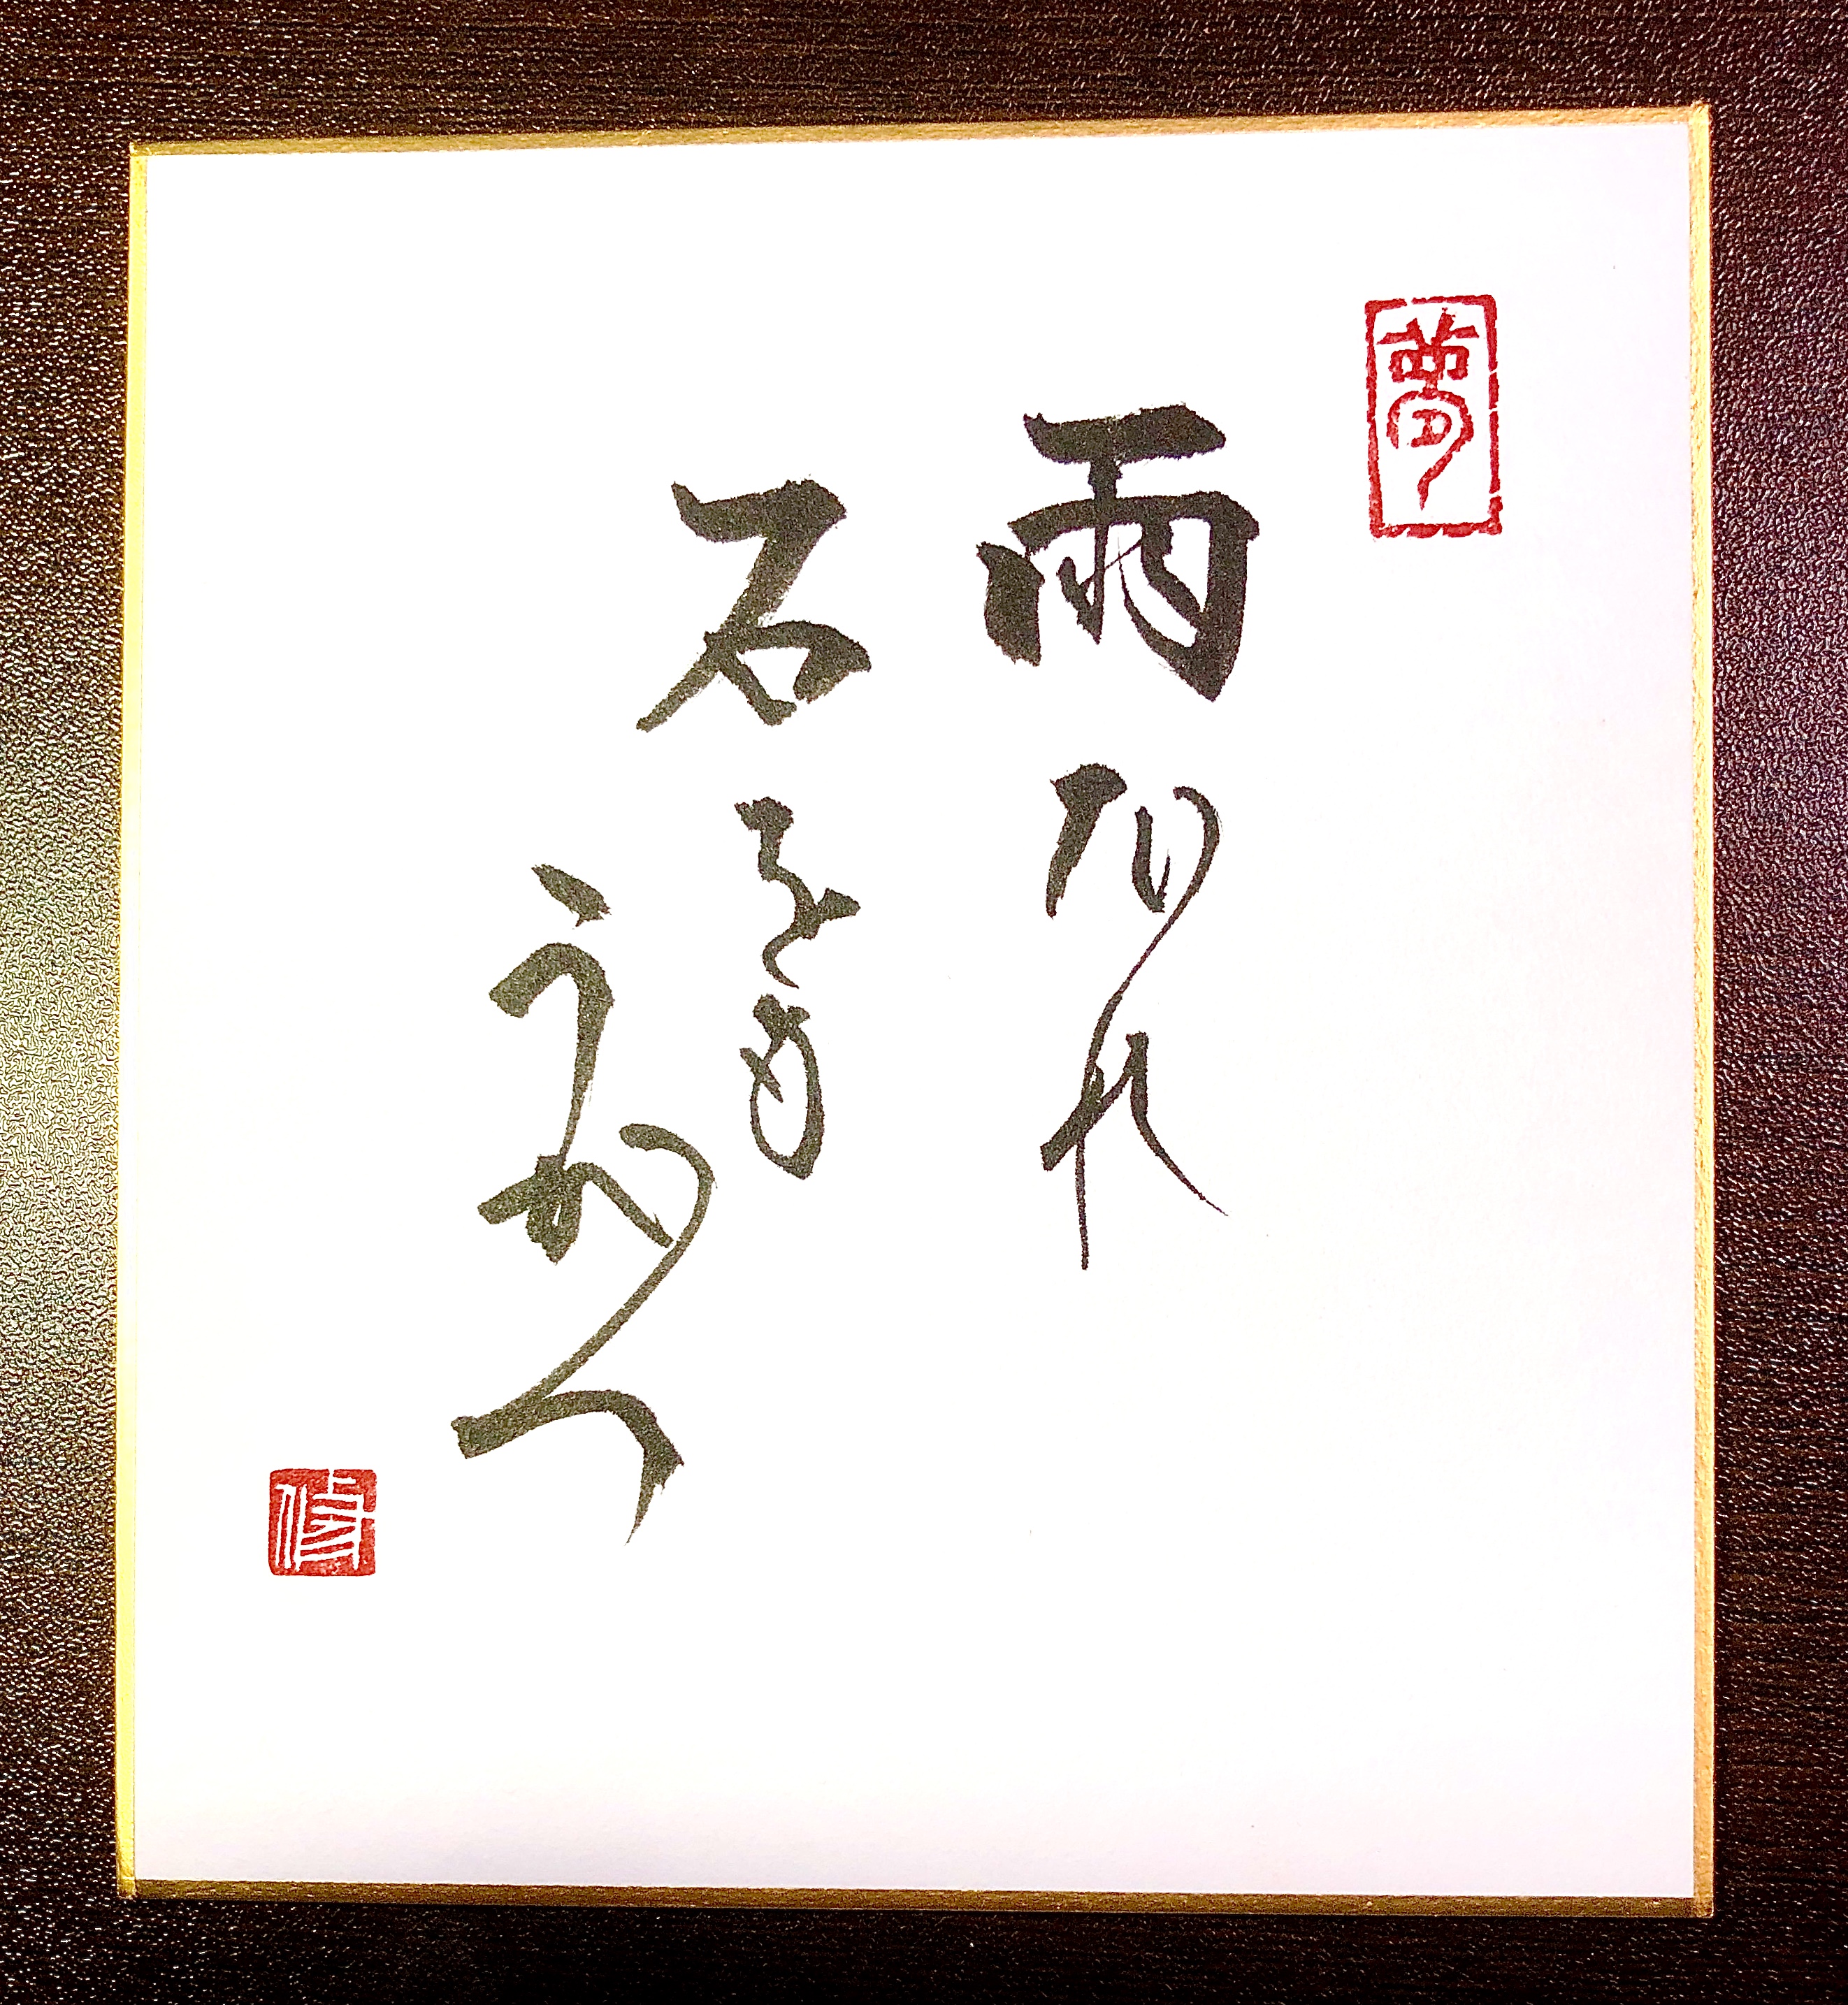 夢
雨だれ
石をも
うがつ
修